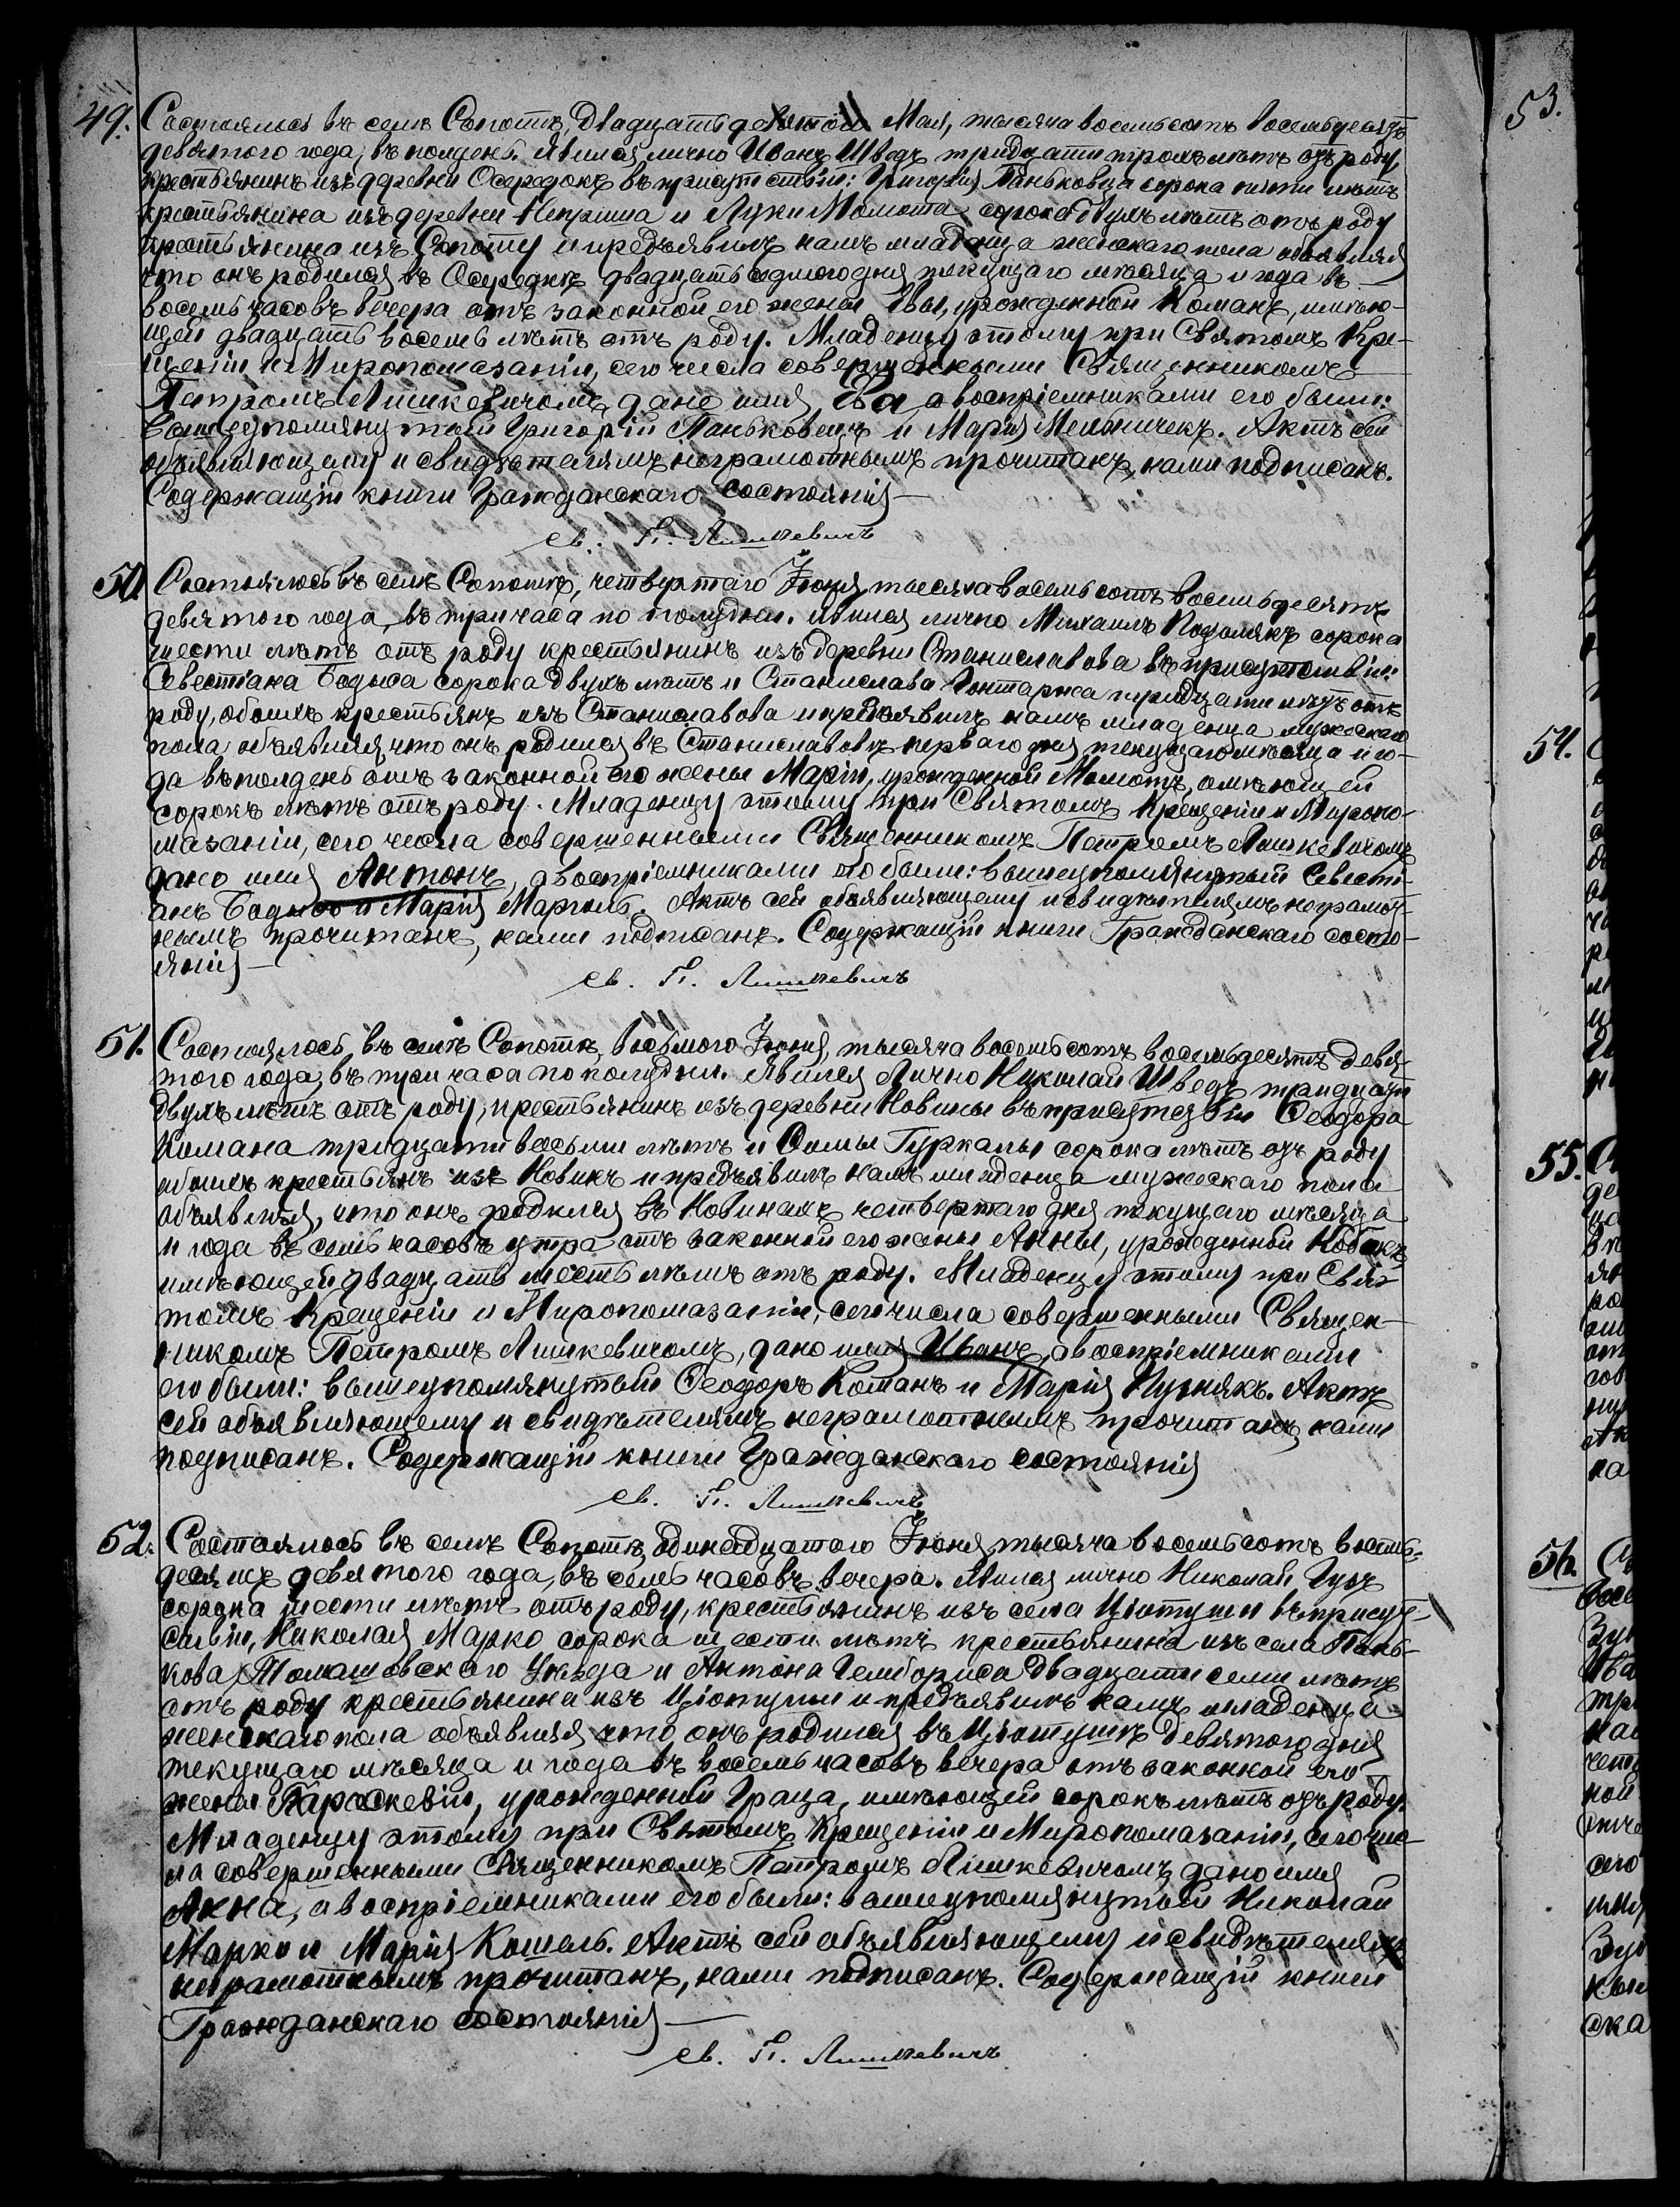 49. Состоялось въ селѣ Сопотѣ, двадцать девятого Мая, тысяча восемьсотъ восемьдесятъ
девятого года, въ полдень. Явился лично Иванъ Шведъ тридцати трохъ лѣтъ отъ роду,
крестьянинъ изъ деревни Осередокъ въ присутствіи: Григорія Паньковца сорока пяти лѣтъ
крестьянина изъ деревни Неприша и Луки Момота сорока двухъ лѣтъ отъ роду
крестьянина изъ Сопоту и предъявилъ намъ младенца женскаго пола объявляя
что онъ родился въ Осередкѣ двадцать седмого дня текущаго мѣсяца и года въ
восемь часовъ вечера отъ законной его жены Евы, урожденной Команъ, имѣю-
щей двадцать восемь лѣтъ отъ роду. Младенцу этому при Святомъ Кре-
щеніи и Миропомазаніи, сего числа совершенными Священникомъ
Петромъ Лишкевичомъ дано имя Ева а воспріемниками его были:
вышеупомянутый Григорій Паньковецъ и Марія Мельничекъ. Актъ сей
объявляющему и свидѣтелямъ неграмотнымъ прочитанъ, нами подписанъ.
Содержащій книги Гражданскаго состоянія
св. П. Лишкевичъ
50. Состоялось въ селѣ Сопотѣ, четвертаго Іюня, тысяча восемьсотъ восемьдесятъ
девятого года, въ три часа по полудни. Явился лично Михаилъ Подолякъ сорока
шести лѣтъ отъ роду крестьянинъ изъ деревни Станиславова въ присутствіи:
Севестіана Бадыса сорока двухъ лѣтъ и Станислава Гонтаржа тридцати лѣтъ отъ
роду, обоихъ крестьянъ изъ Станиславова и предъявилъ намъ младенца мужескаго
пола объявляя что онъ родился въ Станиславовѣ перваго дня текущаго мѣсяца и го-
да въ полдень отъ законной его жены Маріи, урожденной Момотъ, имѣющей
сорокъ лѣтъ отъ роду. Младенцу этому при Святомъ Крещеніи и Миропо-
мазаніи, сего числа совершенными Священникомъ Петромъ Лишкевичомъ
дано имя Антонъ, а воспріемниками его были: вышеупомянутый Севесті-
анъ Бадысъ и Марія Марголь. Актъ сей объявляющему и свидѣтелямъ неграмот-
нымъ прочитанъ, нами подписанъ. Содержащій книги Гражданскаго состо-
янія
св. П. Лишкевичъ
51. Состоялось въ селѣ Сопотѣ, восьмого Іюня, тысяча восемьсотъ восемьдесятъ девя-
того года, въ три часа по полудни. Явился лично Николай Шведъ тридцати
двухъ лѣтъ отъ роду, крестьянинъ изъ деревни Новины въ присутствіи Ѳеодора
Комана тридцати восьми лѣтъ и Ѳомы Гуркалы сорока лѣтъ отъ роду
обоихъ крестьянъ изъ Новинъ и предъявилъ намъ младенца мужескаго пола
объявляя, что онъ родился въ Новинахъ четвертаго дня текущаго мѣсяца
и года въ семь часовъ утра отъ законной его жены Анны, урожденной Кобакъ
имѣющей двадцать шесть лѣтъ отъ роду. Младенцу этому при Свя-
томъ Крещеніи и Миропомазаніи, сего числа совершенными Священ-
никомъ Петромъ Лишкевичомъ, дано имя Иванъ, а воспріемниками
его были: вышеупомянутый Ѳеодоръ Команъ и Марія Пузнякъ. Актъ
сей объявляющему и свидѣтелямъ неграмотнымъ прочитанъ, нами
подписанъ. Содержащій книги Гражданскаго состоянія
св. П. Лишкевичъ
52. Состоялось въ селѣ Сопотѣ, одинадцатаго Іюня тысяча восемьсотъ восемь-
десятъ девятого года, въ семь часовъ вечера. Явился лично Николай Гузъ
сорока шести лѣтъ отъ роду, крестьянинъ изъ села Цютуши въ присут-
ствіи, Николая Марко сорока шести лѣтъ крестьянина изъ села Пань-
кова Томашовскаго Уѣзда и Антона Гембориса двадцати семи лѣтъ
отъ роду крестьянина изъ Цютуши и предъявилъ намъ младенца
женскаго пола объявляя что онъ родился въ Цютушѣ девятого дня
текущаго мѣсяца и года въ восемь часовъ вечера отъ законной его
жены Параскевіи, урожденной Граца, имѣющей сорокъ лѣтъ отъ роду.
Младенцу этому при Святомъ Крещеніи и Миропомазаніи, сего чис-
ла совершенными Священникомъ Петромъ Лишкевичомъ дано имя
Анна, а воспріемниками его были: вышеупомянутый Николай
Марко и Марія Кошель. Актъ сей объявляющему и свидѣтелямъ
неграмотнымъ прочитанъ, нами подписанъ. Содержащій книги
Гражданскаго состоянія
св. П. Лишкевичъ
53.
54.
55.
56.